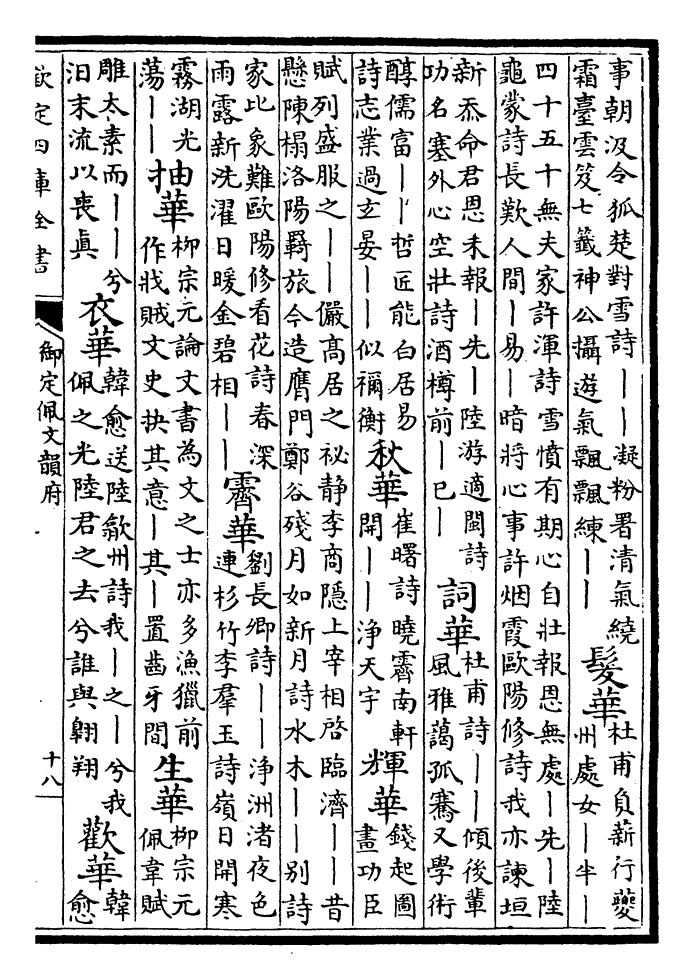 事朝汲令狐楚對雪詩｜｜｜凝粉署清氣繞
霜臺雲笈七籤神公攝遊氣飄飄練｜｜
髮華
杜甫負薪行夔
州處女｜半｜
四十五十無夫家許渾詩雪憤有期心自壯報恩無處｜先｜陸
龜蒙詩長歎人間｜易｜暗將心事許烟霞歐陽修詩我亦諫垣
新忝命君恩未報｜先｜陸游適閩詩
功名塞外心空壯詩酒樽前｜已｜
詞華
杜甫詩｜｜傾後輩
風雅藹孤騫又學術
醇儒富｜｜哲匠能白居易
詩志業過玄晏｜｜似禰衡
秋華
崔曙詩曉霽南軒
開｜｜淨天宇
輝華
錢起圖
畫功臣
賦列盛服之｜｜儼高居之祕静李商隱上宰相啓臨濟｜｜昔
懸陳榻洛陽羇旅今造膺門鄭谷殘月如新月詩水木｜｜别詩
家比象難歐陽修看花詩春深
雨露新洗濯日暖金碧相｜｜
霽華
劉長卿詩｜｜淨洲渚夜色
連杉竹李羣玉詩嶺日開寒
霧湖光
蕩｜｜
抽華
柳宗元論文書為文之士亦多漁獵前
作戕賊文史抉其意｜其｜置齒牙間
生華
柳宗元
佩韋賦
雕太素而｜｜兮
汨末流以喪眞
衣華
韓愈送陸歙州詩我｜之｜兮我
佩之光陸君之去兮誰與翱翔
歡華
韓
愈
欽定四庫全書
御定佩文韻府
十八